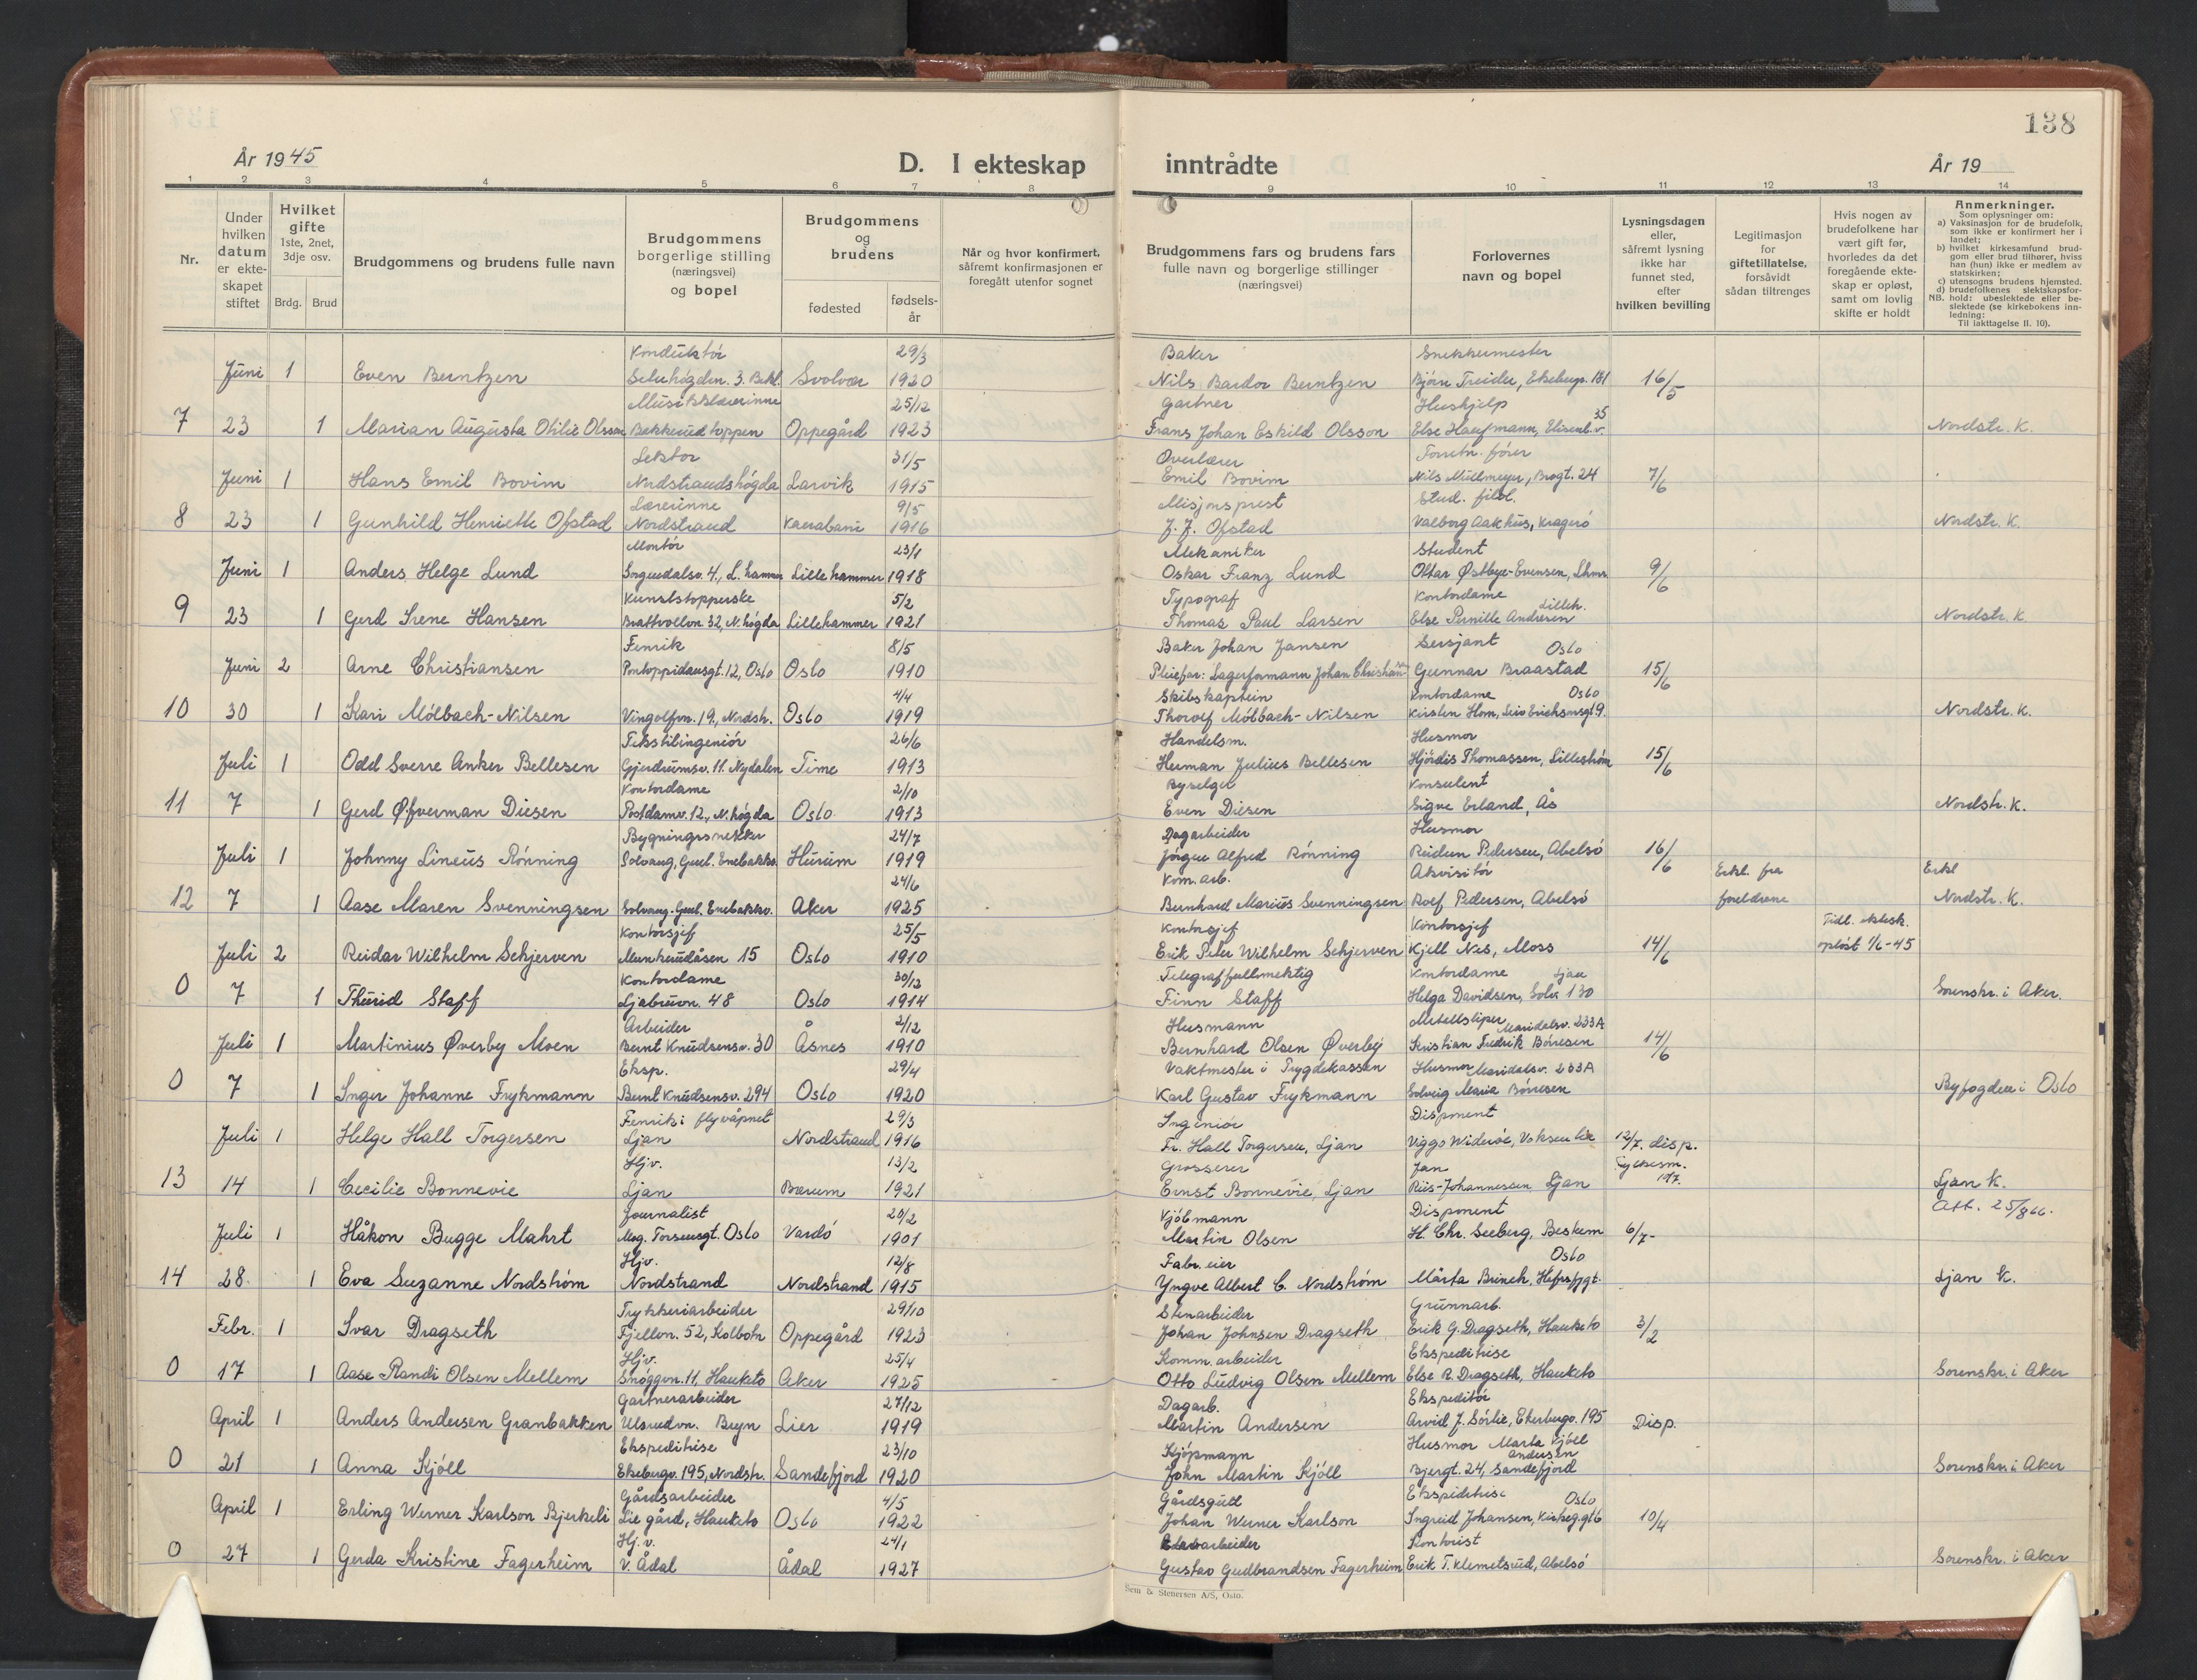 138
År 1945
D. I ekteskap inntrådte
År 19
1 2 3 4 5 6 7 8 9 10 11 12 13 14
Nr.
Under hvilken datum er ekteskapet stiftet
Hvilket gifte
1ste, 2net, 3dje osv.
Brdg. Brud
Brudgommens og brudens fulle navn
Brudgommens borgerlige stilling (næringsvei) og bopel
Brudgommens og brudens
fødested
fødselsår
Når og hvor konfirmert, såfremt konfirmasjonen er foregått utenfor sognet
Brudgommens fars og brudens fars fulle navn og borgerlige stillinger (næringsvei)
Forlovernes navn og bopel
Lysningsdagen eller, såfremt lysning ikke har funnet sted, efter hvilken bevilling
Legitimasjon for giftetillatelse, forsåvidt sådan tiltrenges
Hvis nogen av brudefolkene har vært gift før, hvorledes da det foregående ekteskap er opløst, samt om lovlig skifte er holdt
Anmerkninger.
Som oplysninger om:
a) Vaksinasjon for de brudefolk, som ikke er konfirmert her i landet;
b) hvilket kirkesamfund brudgom eller brud tilhører, hviss han (hun) ikke er medlem av statskirken;
c) utensogns brudens hjemsted.
d) brudefolkenes slektskapsforhold: ubeslektede eller beslektede (se kirkebokens innledning:
NB. Til iakttagelse II. 10).
Konduktør 29/3 Baker Snekkermester
Juni 1 Even Berntzen Seterhøgden. 3. Bekl. Svolvær 1920 Nils Bardor Berntzen Bjørn Treider, Ekebergv. 181 16/5
Musikklærerinne 25/12 Gartner Hushjelp
7 23 1 Marian Augusta Otilie Olsson Bekkerudtoppen Oppegård 1923 Frans Johan Eskild Olsson Else Haufmann, Elisenb.v. 35 Nordstr. K.
Lektor 31/5 Overlærer Forretn.fører
Juni 1 Hans Emil Bovim Nordstrandshøgda Larvik 1915 Emil Bovim Nils Müllmeyer, Brogt. 24 7/6
Lærerinne 9/5 Misjonsprest Stud. filol.
8 23 1 Gunhild Henriette Ofstad Nordstrand 1916 J. J. Ofstad Valborg Aakhus, Kragerø Nordstr. K.
Montør 23/1 Mekaniker Student
Juni 1 Anders Helge Lund Sorgendalsv. 4., L.hamm Lillehammer 1918 Oskar Franz Lund Ottar Østbye-Evensen, Lhmr 9/6
Kunststopperske 5/2 Typograf Kontordame
9 23 1 Gerd Irene Hansen Brattvollvn. 32, N.høgda Lillehammer 1921 Thomas Paul Larsen Else Pernille Andresen Lilleh. Nordstr. K
Fenrik 8/5 Baker Johan Jansen Sersjant Oslo
Juni 2 Arne Christiansen Pontoppidansgt. 12, Oslo Oslo 1910 Pleiefar: Lagerformann Johan Christian Gunnar Braastad 15/6
4/4 Skibskaptein Kontordame Oslo
10 30 1 Kari Mölbach-Nilsen Vingolfvn. 19., Nordstr. Oslo 1919 Thorolf Mölbach-Nilsen Kirsten Hom, Leiv Eirikssonsgt 9. Nordstr. K.
Tekstilingeniør 26/6 Handelsm. Husmor
Juli 1 Odd Sverre Anker Bellesen Gjerdrumsv. 11. Nydalen Time 1913 Herman Julius Bellesen Hjördis Thomassen, Lillestrøm 15/6
Kontordame 2/10 Byselger Konsulent
11 7 1 Gerd Øfverman Diesen Postdamv. 12, N.høgda Oslo 1913 Even Diesen Sigve Erland, Ås Nordstr. K.
Bygningssnekker 24/7 Dagarbeider Husmor
Juli 1 Johnny Lineus Rønning Solvang, Gml. Enebakkv. Hurum 1919 Jørgen Alfred Rønning Reidun Pedersen, Abelsø 16/6
24/6 Kom. arb. Akvisitør Erkl. fra Erkl
12 7 1 Aase Maren Svenningsen Solvang. Gml. Enebakkv. Aker 1925 Bernhard Marius Svenningsen Rolf Pedersen, Abelsø foreldrene Nordstr. K.
Kontorsjef 25/5 Kontorsjef Kontorsjef Tidl. ektesk.
Juli 2 Reidar Wilhelm Schjerven Munkerudåsen 15 Oslo 1910 Erik Peter Wilhelm Schjerven Kjell Nes, Moss 14/6 opløst 1/6-45
Kontordame 30/12 Telegraffullmektig Kontordame Ljan
0 7 1 Thurid Staff Ljabruvn. 48 Oslo 1914 Finn Staff Helga Davidsen, Solv. 130 Sorenskr. i Aker.
Arbeider 2/12 Husmann Metallsliper Maridalsv. 233A
Juli 1 Martinius Øverby Moen Bernt Knudsensv. 30 Åsnes 1910 Bernhard Olsen Øverby Kristian Fredrik Børresen 14/6
Eksp. 29/4 Vaktmester i Trygdekassen Husmor Maridalsv. 233A
0 7 1 Inger Johanne Frykmann Bernt Knudsensv. 294 Oslo 1920 Karl Gustav Frykmann Solveig Maria Børresen Byfogden i Oslo
Fenrik i flyvåpnet 29/3 Ingeniør Disponent
Juli 1 Helge Hall Torgersen Ljan Nordstrand 1916 Fr. Hall Torgersen, Ljan Viggo Widerøe, Voksenlia 12/7. disp.
Hjv. 13/2 Grosserer Jan Fylkesm.
13 14 1 Cecilie Bonnevie Ljan Bærum 1921 Ernst Bonnevie, Ljan Riis-Johannessen Ljan Ljan K.
Journalist 20/2 Kjøbmann Disponent Att. 25/8 66.
Juli 1 Håkon Bugge Mahrt Mog. Torsensgt. Oslo Vardø 1901 Martin Olsen H. Chr. Seeberg, Bestum 6/7-
Hjv. 12/8 Fabr.eier Oslo
14 28. 1 Eva Suzanne Nordstrøm Nordstrand Nordstrand 1915 Yngve Albert C. Nordstrøm Märta Brinch, Ljan K.
Trykkeriarbeider 29/10 Stenarbeider Grunnarb.
Febr. 1 Ivar Dragseth Fjellvn. 52, Kolbotn Oppegård 1923 Johan Johnsen Dragseth Erik G. Dragseth, Hauketo 3/2
Hjv. 25/4 Komm. arbeider Ekspeditrise
0 17 1 Aase Randi Olsen Mellem Snøggvn. 11, Hauketo Aker 1925 Otto Ludvig Olsen Mellem Else R. Dragseth, Hauketo Sorenskr. i Aker
Gartnerarbeider 27/12 Dagarb. Ekspeditør
April 1 Anders Andersen Granbakken Ulsrudvn. Bryn Lier 1919 Martin Andersen Arvid J. Sørlie, Ekebergv. 195 Disp.
Ekspeditrise 23/10 Kjøpmann Husmor Marta Kjöll Andersen
0 21 1 Anna Kjöll Ekebergv. 195, Nordstr. Sandefjord 1920 John Martin Kjöll Bjergt. 24, Sandefjord Sorenskr. i Aker
Gårdsarbeider 4/5 Gårdsgutt Ekspeditrise Oslo
April 1 Erling Werner Karlson Bjerkeli Lie gård, Hauketo Oslo 1922 Johan Werner Karlson Ingreid Johansen, Kirkeg.gt 6 10/4
Hj.v. 24/1 arbeider Kontorist
0 27 1 Gerda Kristine Fagerheim V. Ådal Ådal 1927 Gustav Gudbrandsen Fagerheim Erik T. Klemetsrud, Abelsø Sorenskr. i Aker
Sem & Stenersen A/S, Oslo.